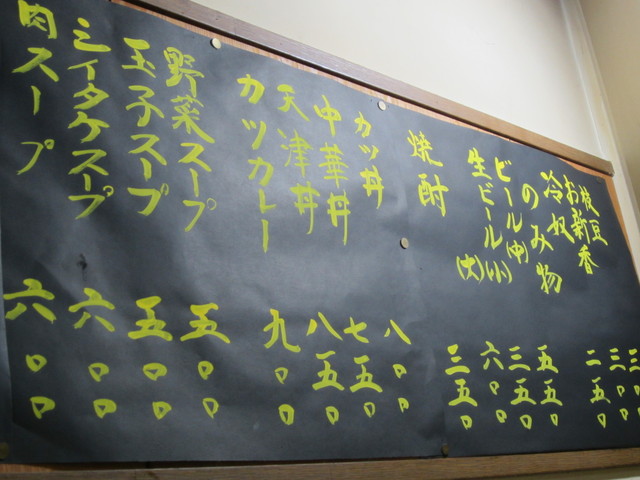 枝豆 三〇〇
お新香 三〇〇
冷奴 二五〇
のみ物
ビール(中) 五五〇
(小) 三五〇
生ビール(大) 六〇〇
焼酎 三五〇
カツ丼 八〇〇
中華丼 七五〇
天津丼 八五〇
カツカレー 九〇〇
野菜スープ 五〇〇
玉子スープ 五〇〇
シイタケスープ 六〇〇
肉スープ 六〇〇